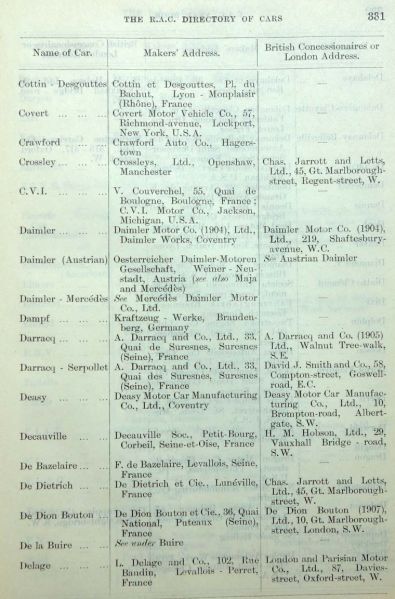 THE R.A.C. DIRECTORY OF CARS 331
Name of Car. Makers' Address. British Concessionaires or London Address.
Cottin - Desgouttes Cottin et Desgouttes, Pl. du Bachut, Lyon - Monplaisir (Rhône), France —
Covert ... ... Covert Motor Vehicle Co., 57, Richmond-avenue, Lockport, New York, U.S.A. —
Crawford ... ... Crawford Auto Co., Hagerstown —
Crossley ... ... Crossleys, Ltd., Openshaw, Manchester Chas. Jarrott and Letts, Ltd., 45, Gt. Marlborough-street, Regent-street, W.
C.V.I. ... ... V. Couverchel, 55, Quai de Boulogne, Boulogne, France; C.V.I. Motor Co., Jackson, Michigan, U.S.A. —
Daimler ... ... Daimler Motor Co. (1904), Ltd., Daimler Works, Coventry Daimler Motor Co. (1904), Ltd., 219, Shaftesbury-avenue. W.C.
Daimler (Austrian) Oesterreicher Daimler-Motoren Gesellschaft, Weiner - Neustadt, Austria (see also Maja and Mercédès) See Austrian Daimler
Daimler - Mercédès See Mercédès Daimler Motor Co., Ltd. —
Dampf ... ... Kraftzeug - Werke, Brandenberg, Germany —
Darracq ... ... A. Darracq and Co., Ltd., 33, Quai de Suresnes, Suresnes (Seine), France A. Darracq and Co. (1905) Ltd., Walnut Tree-walk, S.E.
Darracq - Serpollet A. Darracq and Co., Ltd., 33, Quai des Suresnes, Suresnes (Seine), France David J. Smith and Co., 58, Compton-street, Goswell-road, E.C.
Deasy ... ... Deasy Motor Car Manufacturing Co., Ltd., Coventry Deasy Motor Car Manufacturing Co., Ltd., 10, Brompton-road, Albert-gate, S.W.
Decauville ... ... Decauville Soc., Petit-Bourg, Corbeil, Seine-et-Oise, France H. M. Hobson, Ltd., 29, Vauxhall Bridge - road, S.W.
De Bazelaire ... ... F. de Bazelaire, Levallois, Seine, France —
De Dietrich ... ... De Dietrich et Cie., Lunéville, France Chas. Jarrott and Letts, Ltd., 45, Gt. Marlborough-street, W.
De Dion Bouton ... De Dion Bouton et Cie., 36, Quai National, Puteaux (Seine), France De Dion Bouton (1907), Ltd., 10, Gt. Marlborough-street, London, S.W.
De la Buire ... ... See under Buire —
Delage ... ... L. Delage and Co., 102, Rue Baudin, Levallois - Perret, France London and Parisian Motor Co., Ltd., 87, Davies-street, Oxford-street, W.